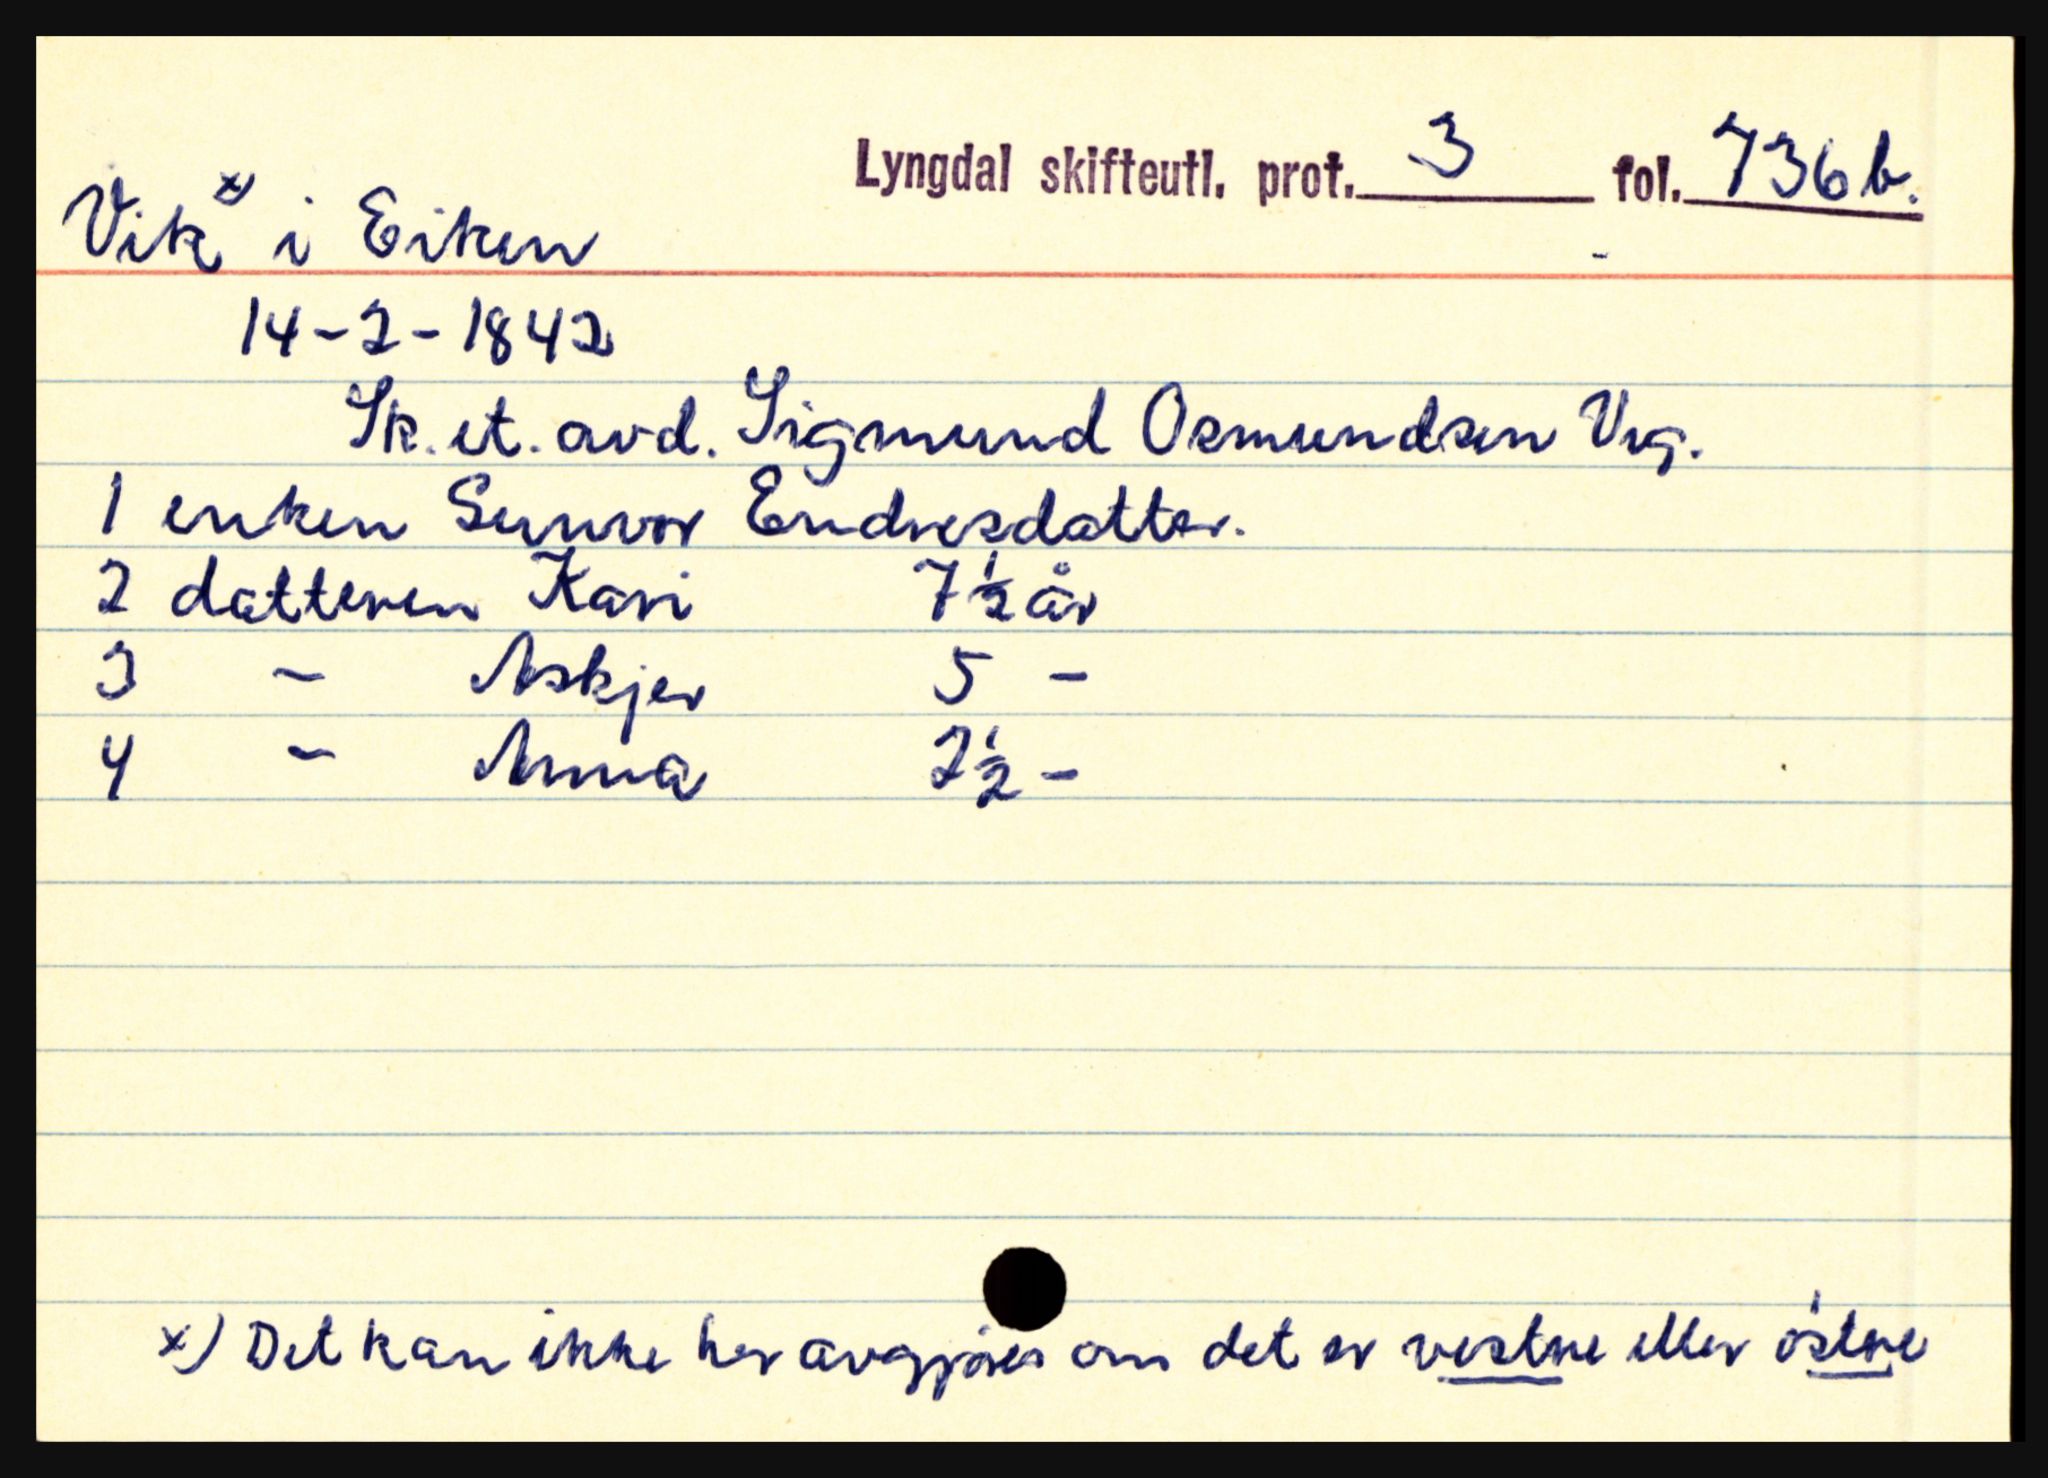 Lyngdal skifteutl. prot. 3 fol. 736b.
Vik x) i Eiken
14-2-1842
Sk. et. avd. Sigmund Osmundsen Vig.
1 enken Sunvor Endresdatter.
2 datteren Kari 7½ år
3 - Askjer 5 -
4 - Anna 2½ -
x) Det kan ikke her avgjøres om det er vestre eller østre